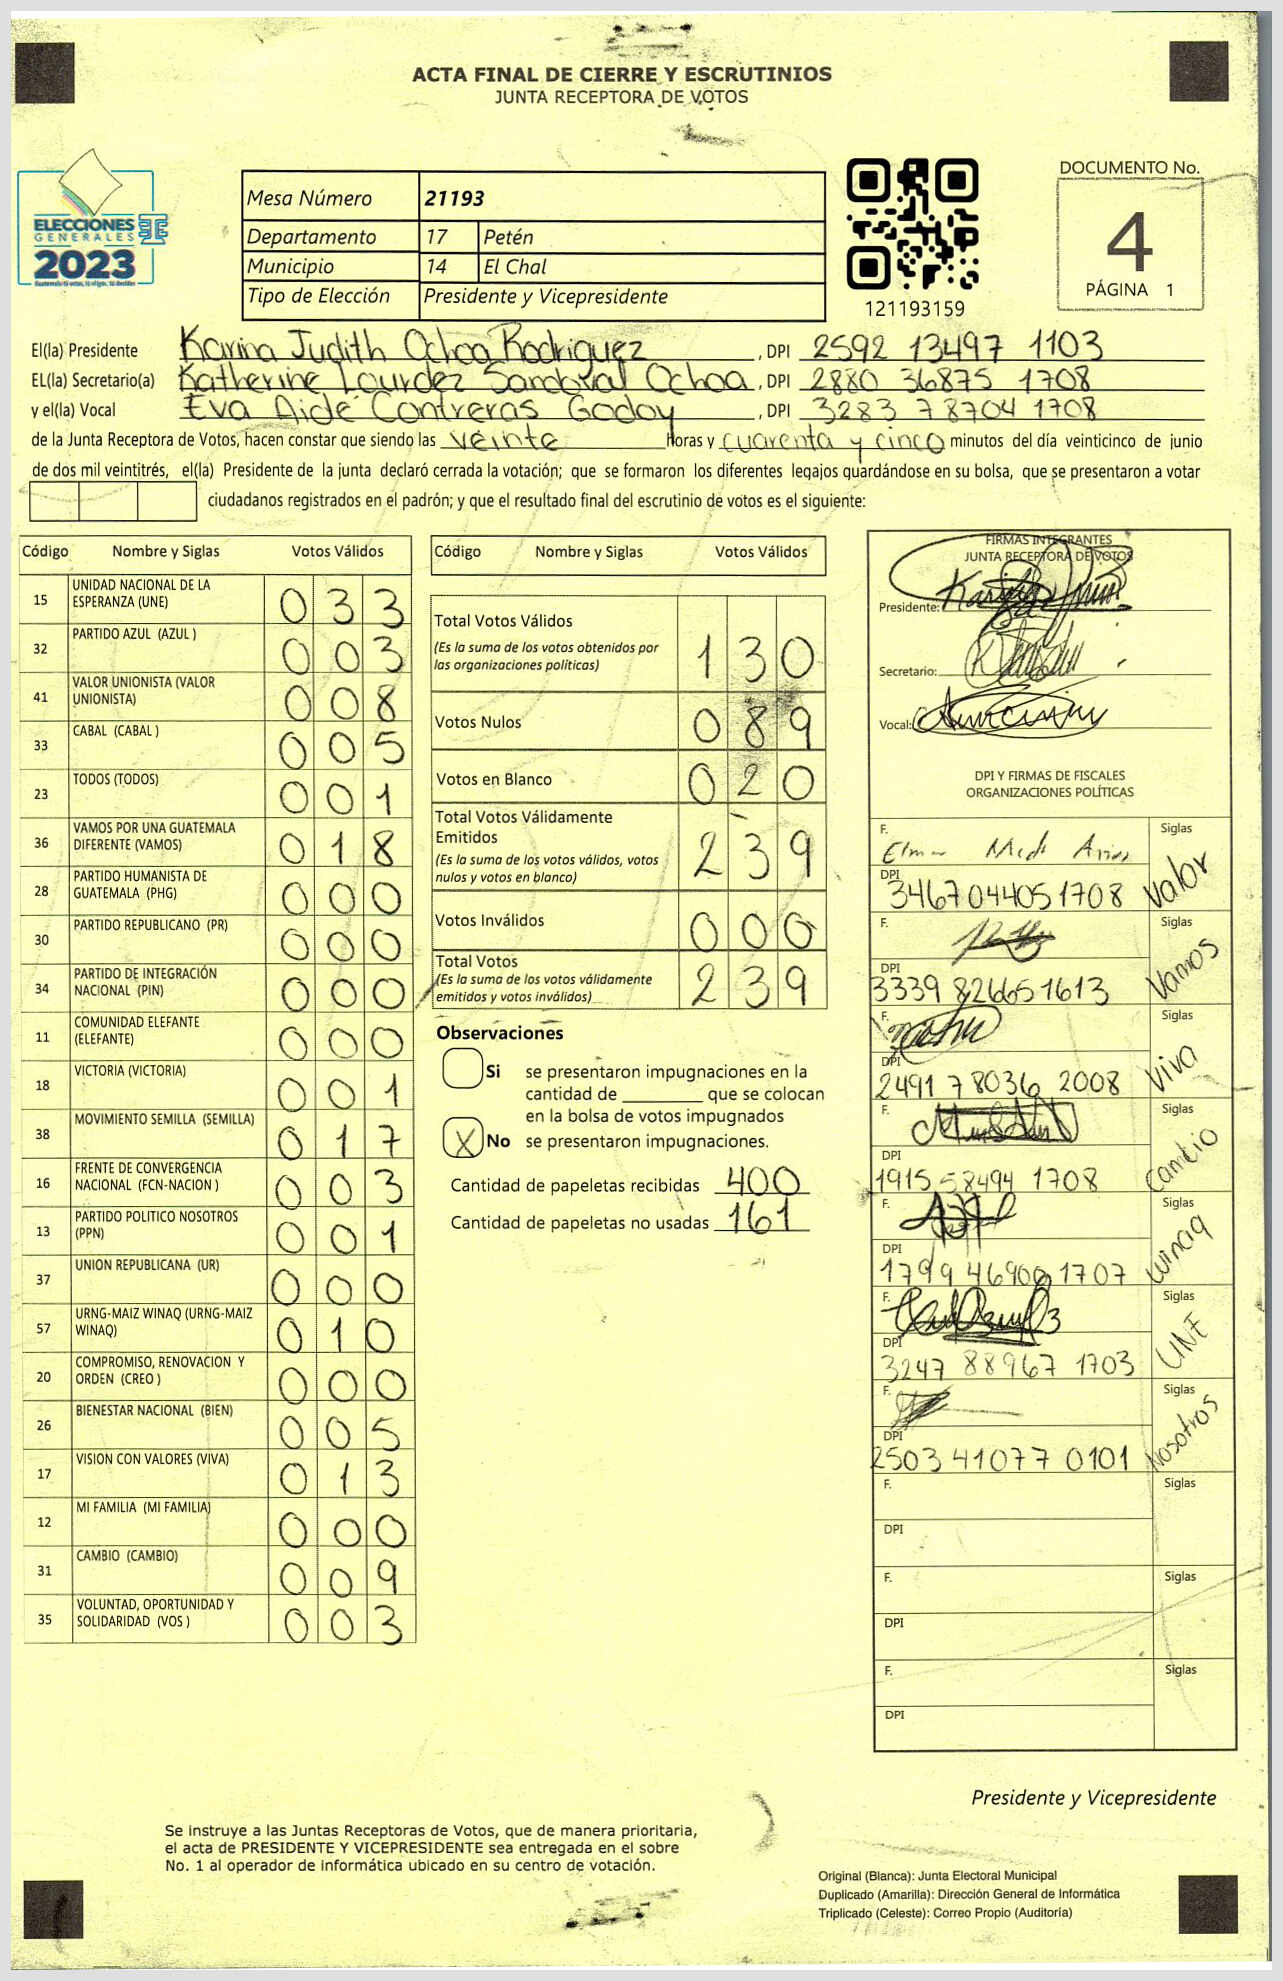 ACTA FINAL DE CIERRE Y ESCRUTINIOS
JUNTA RECEPTORA DE VOTOS
ELECCIONES
GENERALES
2023
Mesa Número 21193
Departamento 17 Petén
Municipio 14 El Chal
Tipo de Elección Presidente y Vicepresidente
121193159
DOCUMENTO No.
4
PÁGINA 1
El(la) Presidente Karina Judith Ochoa Rodriguez, DPI 2592 13497 1103
EL(la) Secretario(a) Katherine Lourdez Sandoval Ochoa, DPI 2880 36875 1708
y el(la) Vocal Eva Aidé Contreras Godoy, DPI 3283 78704 1708
de la Junta Receptora de Votos, hacen constar que siendo las veinte Horas y cuarenta y cinco minutos del día veinticinco de junio
de dos mil veintitrés, el(la) Presidente de la junta declaró cerrada la votación; que se formaron los diferentes legajos guardándose en su bolsa, que se presentaron a votar
ciudadanos registrados en el padrón; y que el resultado final del escrutinio de votos es el siguiente:
Código Nombre y Siglas Votos Válidos
15 UNIDAD NACIONAL DE LA ESPERANZA (UNE) 033
32 PARTIDO AZUL (AZUL ) 003
41 VALOR UNIONISTA (VALOR UNIONISTA) 008
33 CABAL (CABAL ) 005
23 TODOS (TODOS) 001
36 VAMOS POR UNA GUATEMALA DIFERENTE (VAMOS) 018
28 PARTIDO HUMANISTA DE GUATEMALA (PHG) 000
30 PARTIDO REPUBLICANO (PR) 000
34 PARTIDO DE INTEGRACIÓN NACIONAL (PIN) 000
11 COMUNIDAD ELEFANTE (ELEFANTE) 000
18 VICTORIA (VICTORIA) 001
38 MOVIMIENTO SEMILLA (SEMILLA) 017
16 FRENTE DE CONVERGENCIA NACIONAL (FCN-NACION ) 003
13 PARTIDO POLITICO NOSOTROS (PPN) 001
37 UNION REPUBLICANA (UR) 000
57 URNG-MAIZ WINAQ (URNG-MAIZ WINAQ) 010
20 COMPROMISO, RENOVACION Y ORDEN (CREO ) 000
26 BIENESTAR NACIONAL (BIEN) 005
17 VISION CON VALORES (VIVA) 013
12 MI FAMILIA (MI FAMILIA) 000
31 CAMBIO (CAMBIO) 009
35 VOLUNTAD, OPORTUNIDAD Y SOLIDARIDAD (VOS ) 003
Código Nombre y Siglas Votos Válidos
Total Votos Válidos 130
(Es la suma de los votos obtenidos por
las organizaciones políticas)
Votos Nulos 089
Votos en Blanco 020
Total Votos Válidamente
Emitidos 239
(Es la suma de los votos válidos, votos
nulos y votos en blanco)
Votos Inválidos 000
Total Votos 239
(Es la suma de los votos válidamente
emitidos y votos inválidos)
Observaciones
Si se presentaron impugnaciones en la
cantidad de ________ que se colocan
en la bolsa de votos impugnados
X No se presentaron impugnaciones.
Cantidad de papeletas recibidas 400
Cantidad de papeletas no usadas 161
FIRMAS INTEGRANTES
JUNTA RECEPTORA DE VOTOS
Presidente:
Secretario:
Vocal:
DPI Y FIRMAS DE FISCALES
ORGANIZACIONES POLÍTICAS
F. Siglas
DPI 3467044051708 Valor
F. Siglas
DPI 3339 826651613 Vamos
F. Siglas
DPI 2491 78036 2008 Viva
F. Siglas
DPI 1915 58494 1708 Cambio
F. Siglas
DPI 1799 46900 1707 Winaq
F. Siglas
DPI 3247 88967 1703 UNE
F. Siglas
DPI 2503 41077 0101 Nosotros
F. Siglas
DPI
F. Siglas
DPI
F. Siglas
DPI
Presidente y Vicepresidente
Se instruye a las Juntas Receptoras de Votos, que de manera prioritaria,
el acta de PRESIDENTE Y VICEPRESIDENTE sea entregada en el sobre
No. 1 al operador de informática ubicado en su centro de votación.
Original (Blanca): Junta Electoral Municipal
Duplicado (Amarilla): Dirección General de Informática
Triplicado (Celeste): Correo Propio (Auditoría)